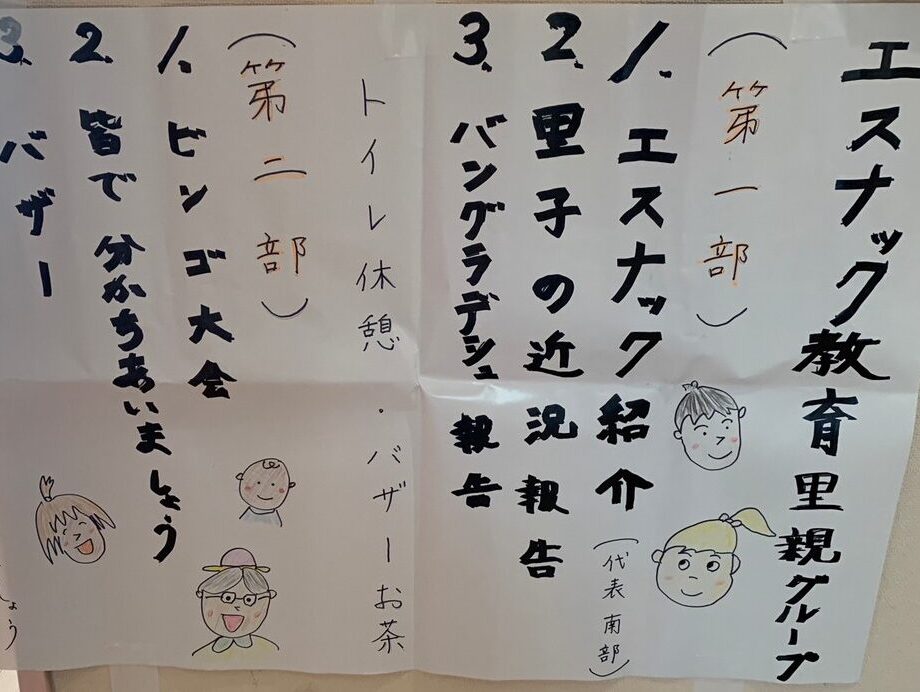 エスナック教育里親グループ
(第一部)
1. エスナック紹介(代表 南部)
2. 里子の近況報告
3. バングラデシュ報告
トイレ休憩・バザーお茶
(第二部)
1. ビンゴ大会
2. 皆で分かちあいましょう
3. バザー
ょう